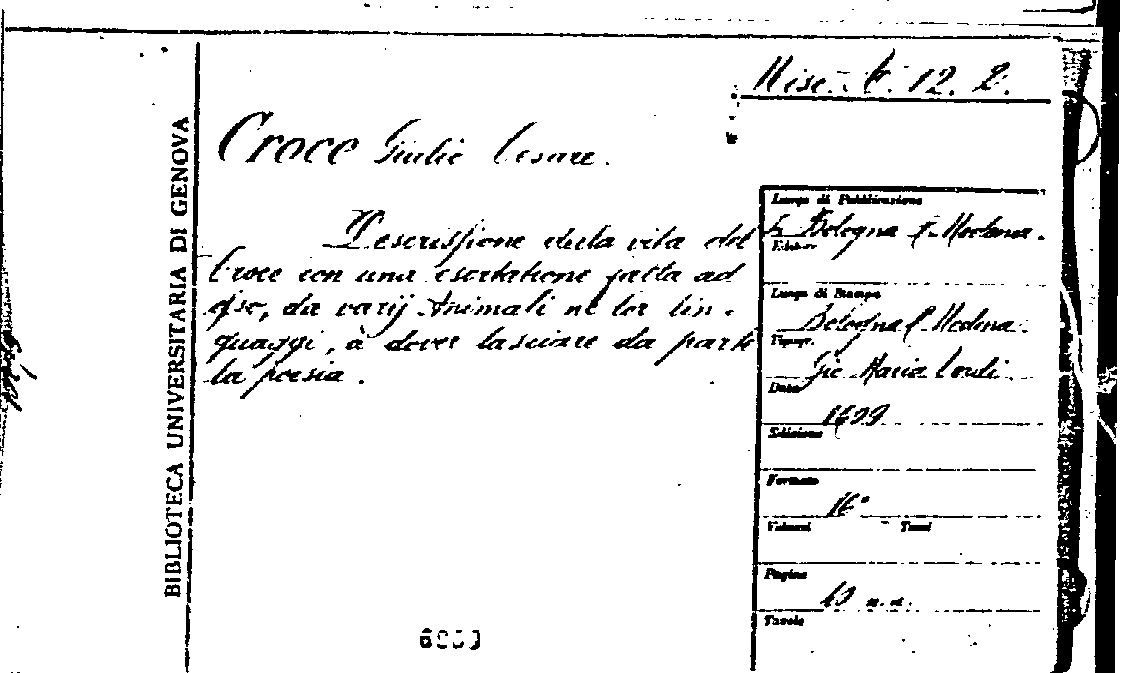 Misc. A. 12. 2.
BIBLIOTECA UNIVERSITARIA DI GENOVA
Croce Giulio Cesare.
Descrissione della vita del
Croce con una esortatione fatta ad
esso, da varij Animali ne lor lin-
guaggi, à dover lasciare da parte
la poesia.
Luogo di Pubblicazione
Bologna e Modena.
Editore
Luogo di Stampa
Bologna e Modena.
Tipogr.
Gio Maria
Data
Edizione
Formato
16°
Volumi Tomi
Pagine
n.n.
Tavole